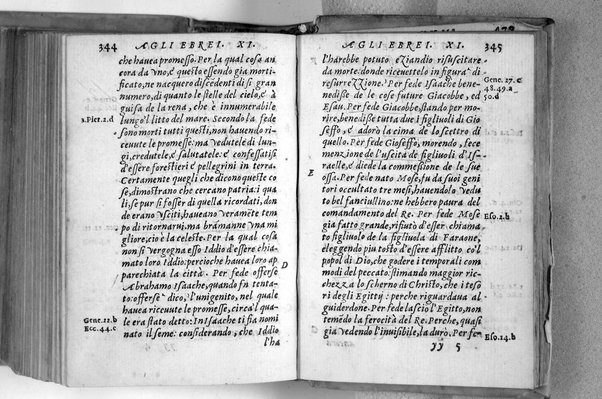 344 AGLI EBREI. XI.
che hauea promesso. Per la qual cosa an
cora da vno, & questo essendo gia morti
ficato, ne nacquero discedenti di si gran
numero, di quanto le stelle del cielo, & à
guisa de la rena, che è innumerabile
1.Piet.2.d
lungo'l litto del mare. Secondo la fede
sono morti tutti questi, non hauendo ri
ceuute le promesse: ma vedutele di lun
gi, credutele, & salutatele: & confessatisi
d'essere forestieri & pellegrini in terra.
Certamente quegli che dicono queste co
se, dimostrano che cercano patria: i qua
li, se pur si fosser di quella ricordati, don
de erano vsciti, haueano veramēte tem
po di ritornarui, ma bramanne vna mi
gliore, cio è la celeste. Per la qual cosa
non si vergogna esso Iddio d'essere chia
mato loro Iddio: percioche hauea loro ap
parechiata la città. Per fede offerse
D
Abrahamo Isaache, quando fu tenta-
to: offerse dico, l'unigenito, nel quale
hauea riceuute le promesse, circa'l qua-
Gene.21.b
le era stato detto: In Isaache ti fia nomi
Ecc.44.c
nato il seme: considerando, che Iddio
l'ha
AGLI EBREI. XI. 345
l'harebbe potuto eziandio risuscitare
da morte: donde riceuettelo in figura di
Gene.27.c
resurrezzione. Per fede Isaache bene-
48.49.a
nedisse de le cose future Giacobbe, ed
50.d
Esau. Per fede Giacobbe stando per mo-
rire, benedisse tutta dua i figliuoli di Gio
seffo, & adorò la cima de lo scettro di
quello. Per fede Gioseffo, morendo, fece
menzione de l'uscita de figliuoli d'Is-
raelle, & diede la commessione de le sue
E
ossa. Per fede nato Mose, fu da suoi geni
tori occultato tre mesi, hauendolo vedu
to bel fanciullino: ne hebbero paura del
comandamento del Re. Per fede Mose
Eso.2.b
gia fatto grande, rifiutò d'esser chiama-
to figliuolo de la figliuola di Faraone,
eleggendo piu tosto d'essere afflitto col
popol di Dio, che godere i temporali com
modi del peccato: stimando maggior ric-
chezza lo scherno di Christo, che i teso
ri degli Egittij: perche riguardaua al
guiderdone. Per fede lasciò l'Egitto, non
temēdo la ferocità del Re. Perche, quasi
gia vedendo l'inuisibile, la durò. Per fe-
Eso.14.b
JJ 5